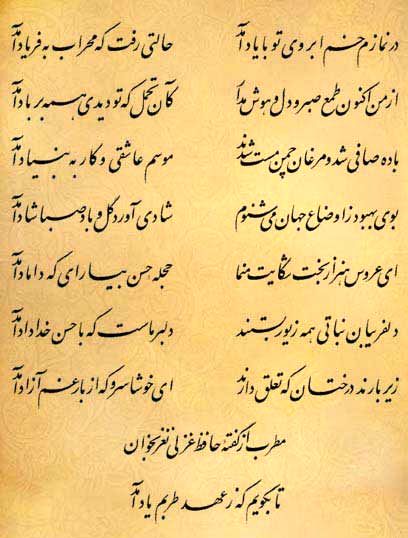 در نمازم خم ابروی تو با یاد آمد حالتی رفت که محراب به فریاد آمد
از من اکنون طمع صبر و دل و هوش مدار کآن تحمل که تو دیدی همه بر باد آمد
باده صافی شد و مرغان چمن مست شدند موسم عاشقی و کار به بنیاد آمد
بوی بهبود ز اوضاع جهان می‌شنوم شادی آورد گل و باد صبا شاد آمد
ای عروس هنر از بخت شکایت منما حجله حسن بیارای که داماد آمد
دلفریبان نباتی همه زیور بستند دلبر ماست که با حسن خداداد آمد
زیر بارند درختان که تعلق دارند ای خوشا سرو که از بار غم آزاد آمد
مطرب از گفته حافظ غزلی نغز بخوان
تا بگویم که ز عهد طربم یاد آمد